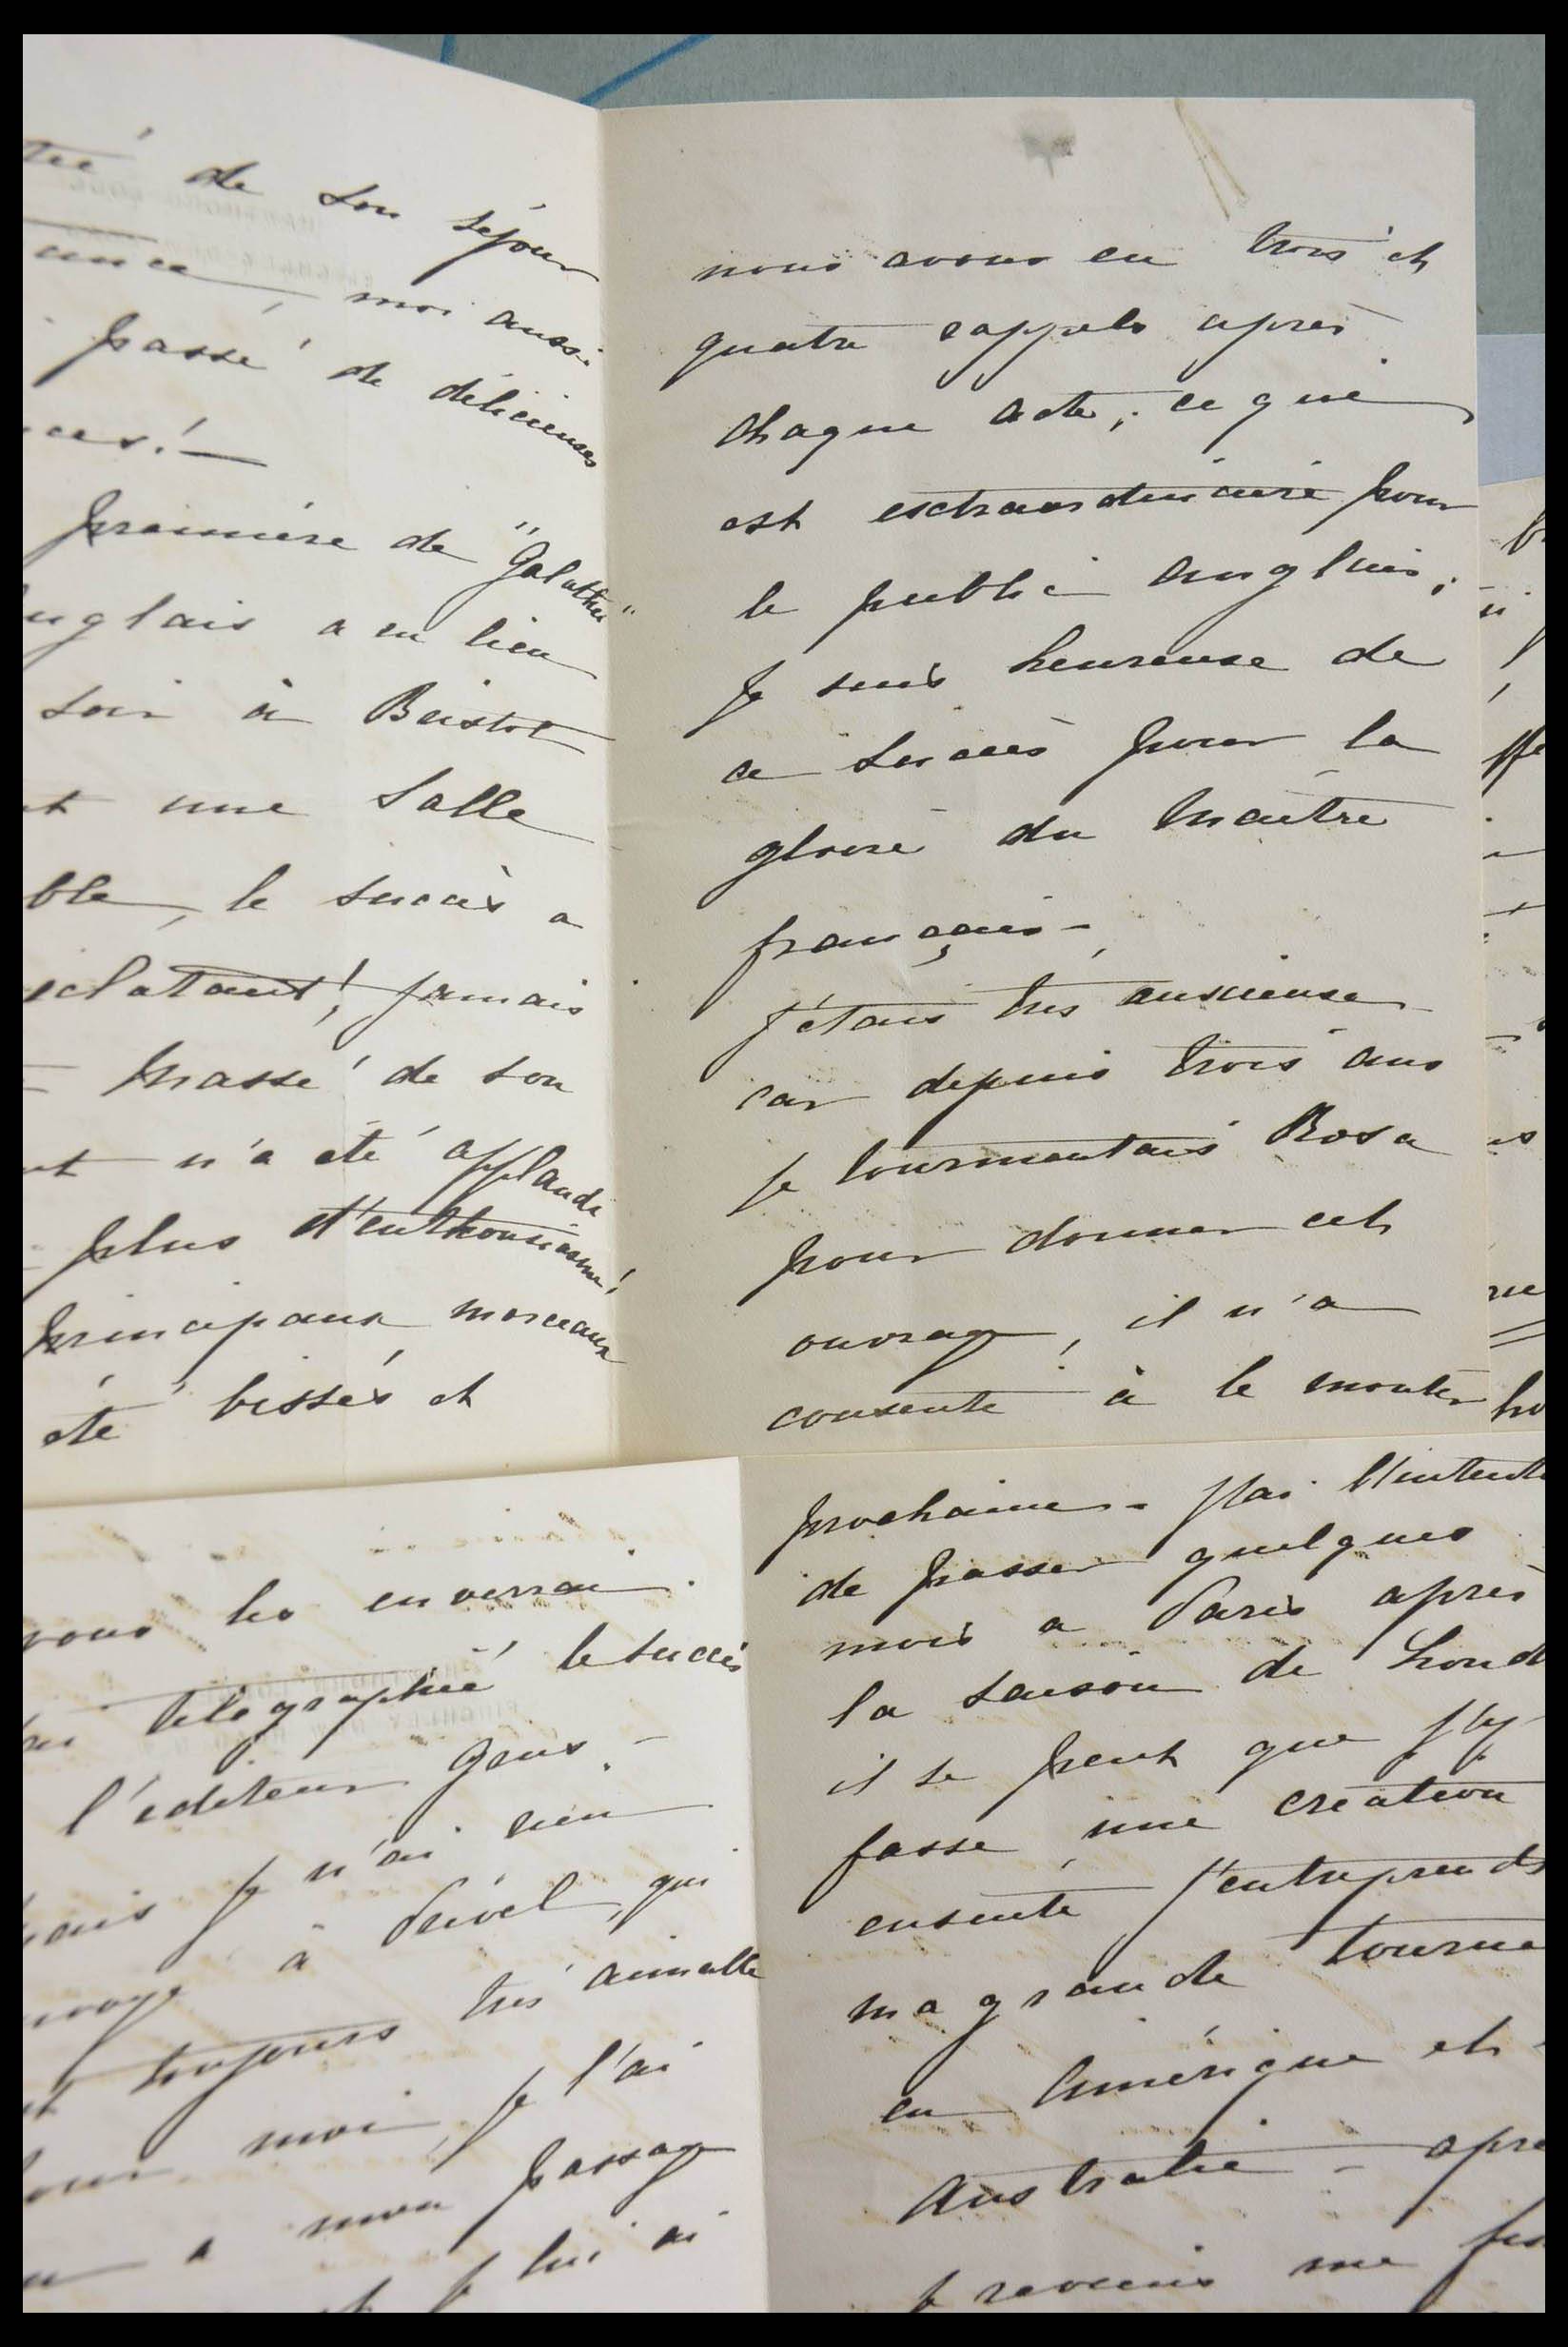 de son séjour
moi aussi
passé de délicieuses
première de "Galathée"
anglais a eu lieu
soir à Bristol
une salle
ble, le succès a
éclatant! jamais
Massé de son
n'a été applaudi
plus d'enthousiasme!
principaux morceaux
été bissés et
nous avons eu trois et
quatre rappels après
chaque acte, ce qui
est extraordinaire pour
le public anglais,
Je suis heureuse de
ce succès pour la
gloire du Maître
français -
J'étais très anxieuse
car depuis trois ans
je tourmentais Rosa
pour donner cet
ouvrage, il n'a
consenti à le monter
vous les enverrai.
télégraphié le succès
l'éditeur Grus. -
mais je n'ai rien
à qui
toujours très aimable
pour moi, je l'ai
à mon passage
et je lui ai
prochaine - J'ai l'intenti
de passer quelques
mois a Paris après
la saison de Lond
il se peut que j'y
fasse une création
ensuite j'entreprends
ma grande tourné
en Amérique et
Australie - apre
je reviens me